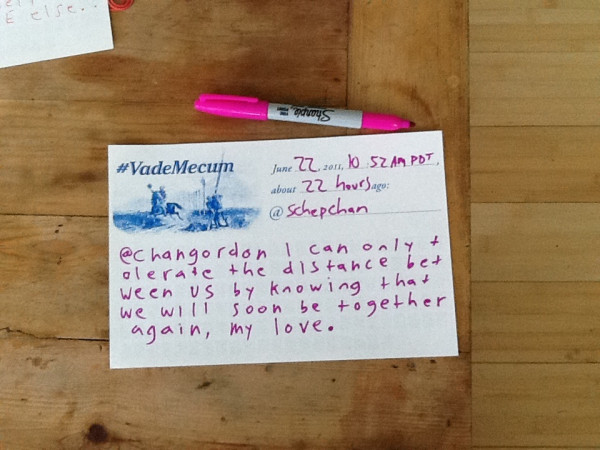 E else..
#VadeMecum
June 22, 2011, 10:52 AM PDT,
about 22 hours ago:
@ schepchan
@changordon I can only t
olerate the distance bet
ween us by knowing that
we will soon be together
again, my love.
Sharpie